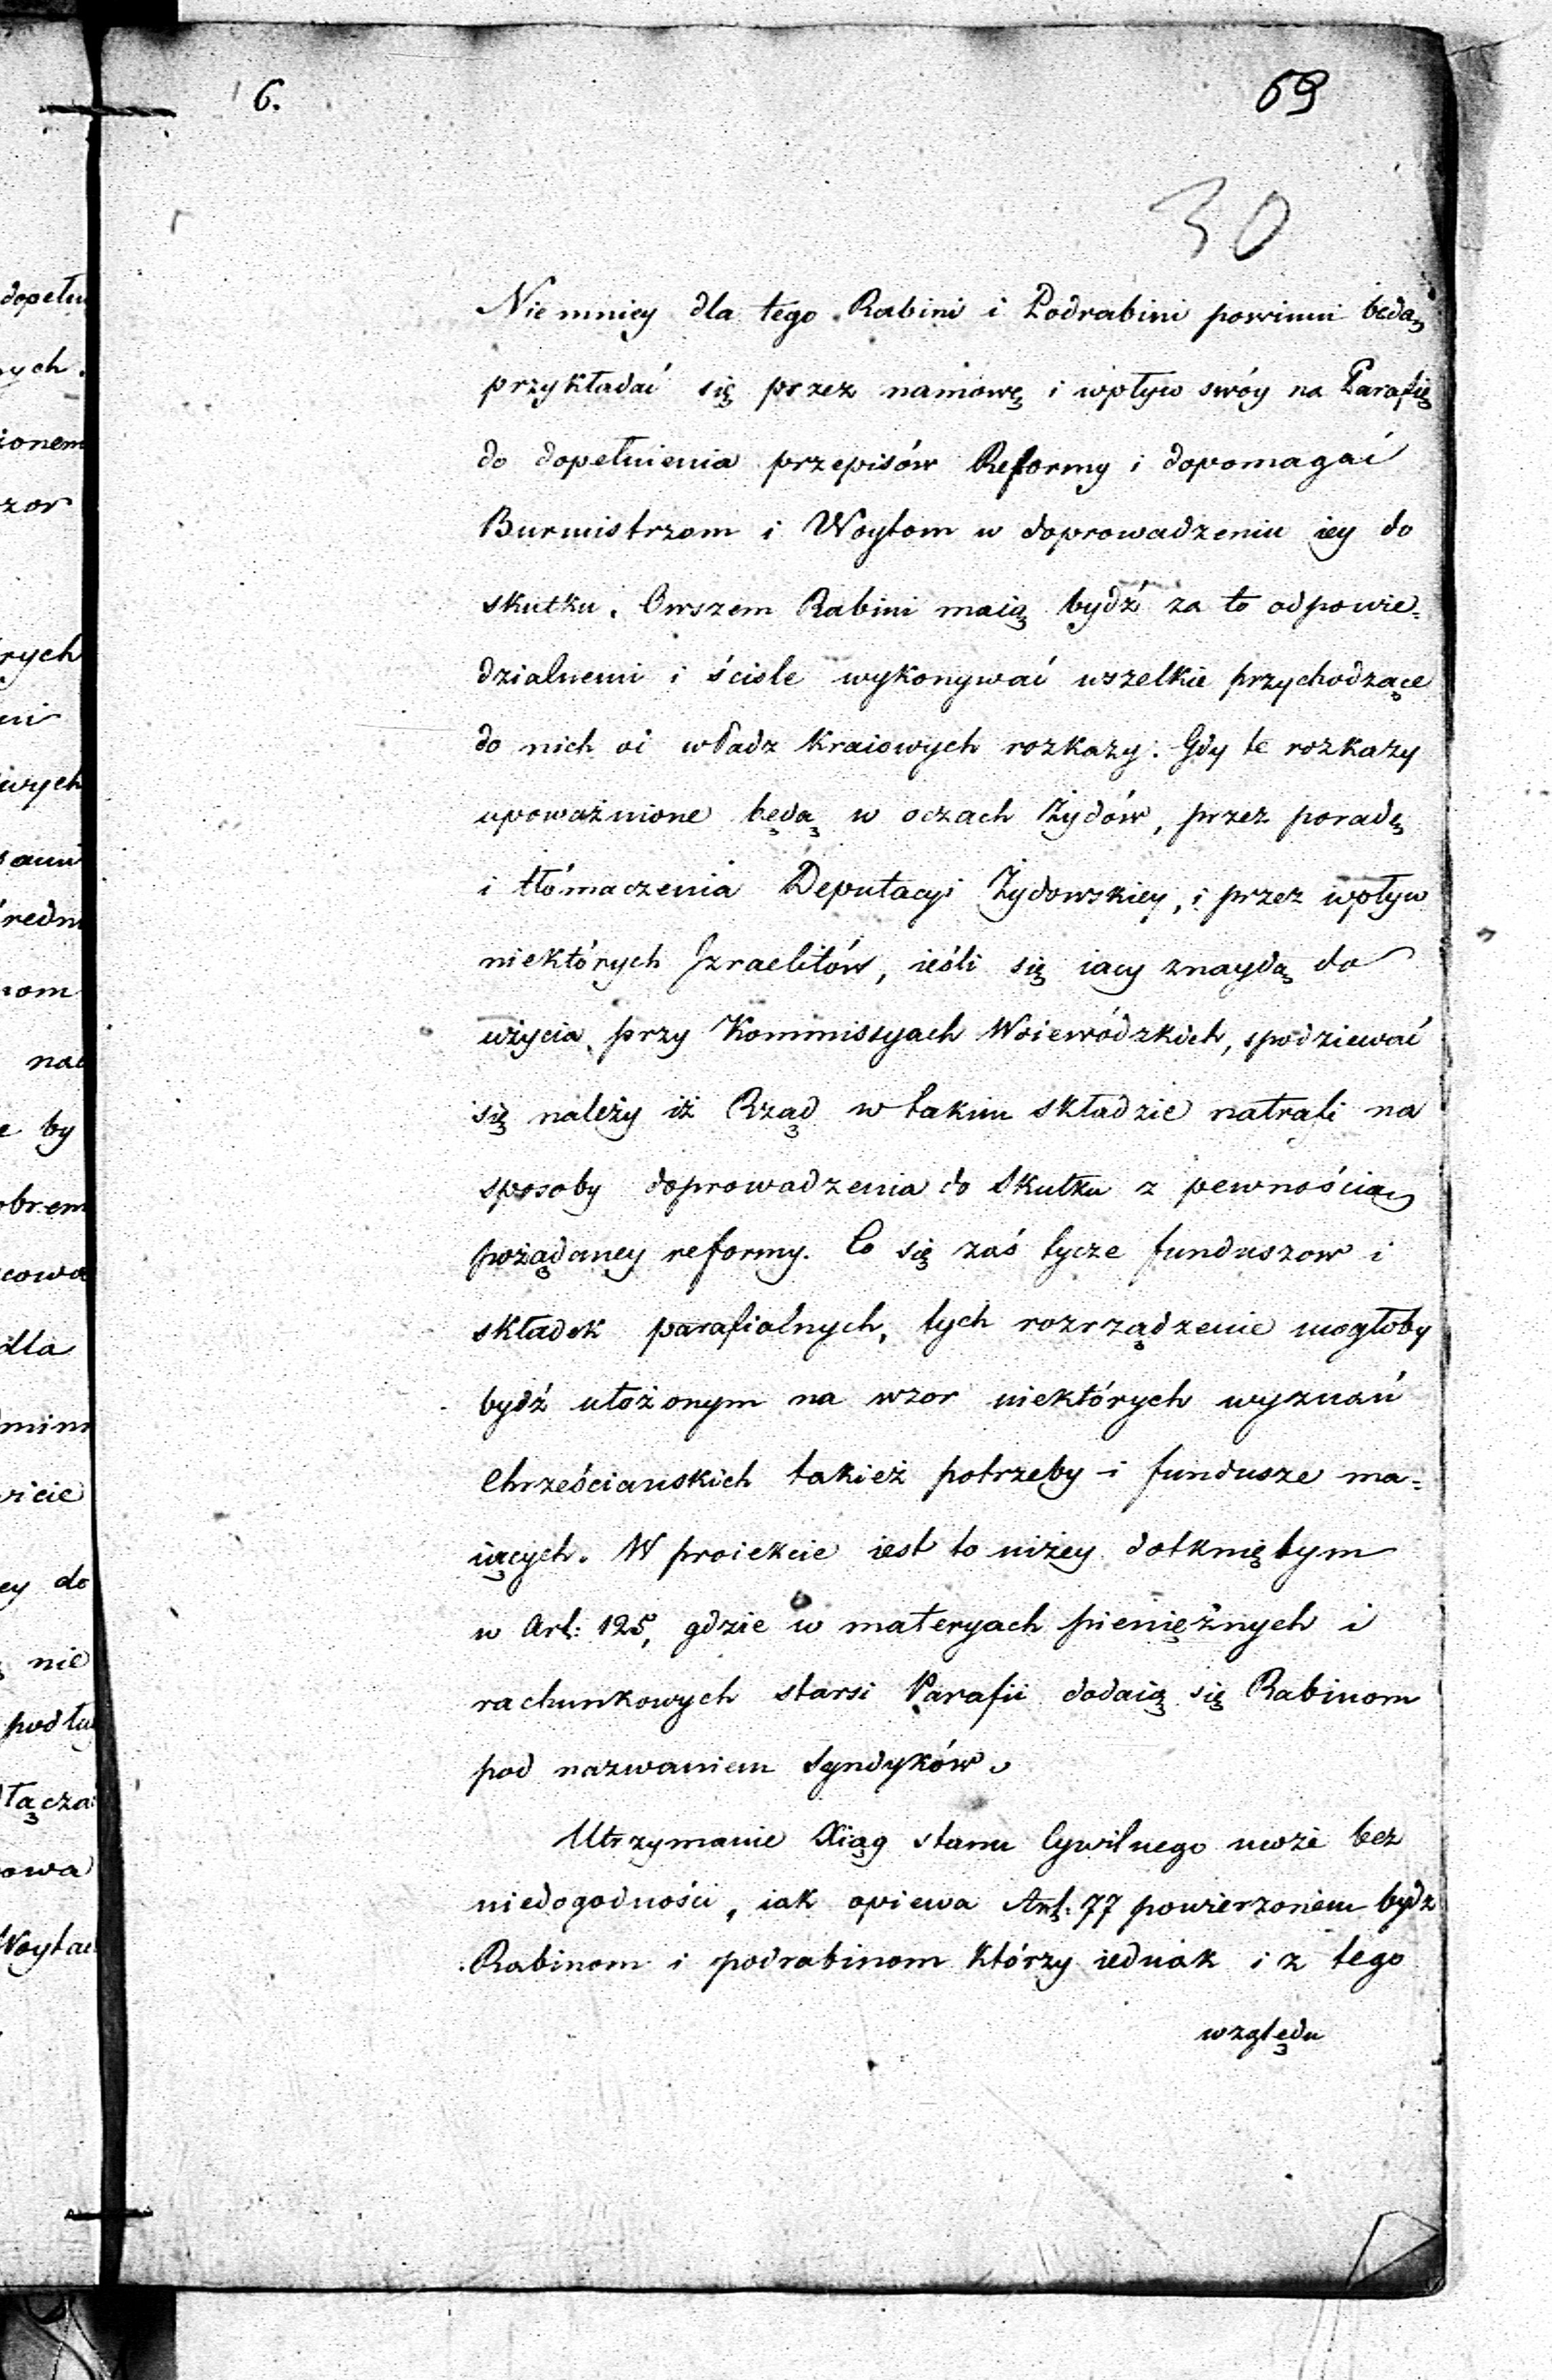 6.
69
30
Nie mniey dla tego Rabini i Podrabini powinni będą
przykładać się przez namowę i wpływ swóy na Parafię
do dopełnienia przepisów Reformy i dopomagać
Burmistrzom i Woytom w doprowadzeniu iey do
skutku. Owszem Rabini maią bydź za to odpowie=
dzialnemi i ściśle wykonywać wszelkie przychodzące
do nich od władz kraiowych rozkazy. Gdy te rozkazy
upoważnione będą w oczach Żydów, przez poradę
i tłómaczenia Deputacyi Żydowskiey, i przez wpływ
niektórych Izraelitów, ieśli się iacy znaydą do
użycia przy Kommissyach Woiewódzkich, spodziewać
się należy iż Rząd w takim składzie natrafi na
sposoby doprowadzenia do skutku z pewnością
pożądaney reformy. Co się zaś tycze funduszow i
składek parafialnych, tych rozrządzenie mogłoby
bydź ułożonym na wzor niektórych wyznań
Chrześciańskich takież potrzeby i fundusze ma=
iących. W proiekcie iest to niżey dotkniętym
w Art: 125, gdzie w materyach pieniężnych i
rachunkowych starsi Parafii dodaią się Rabinom
pod nazwaniem Syndyków.
Utrzymanie Xiąg stanu Cywilnego może bez
niedogodności, iak opiewa Art: 77 powierzonem bydź
Rabinom i podrabinom którzy iednak i z tego
względu
dopełn
ych.
ionem
zor
rych
wych
redn
nom
e by
obrem
cowa
dla
ey do
nie
podług
łącza
owa
Woyta